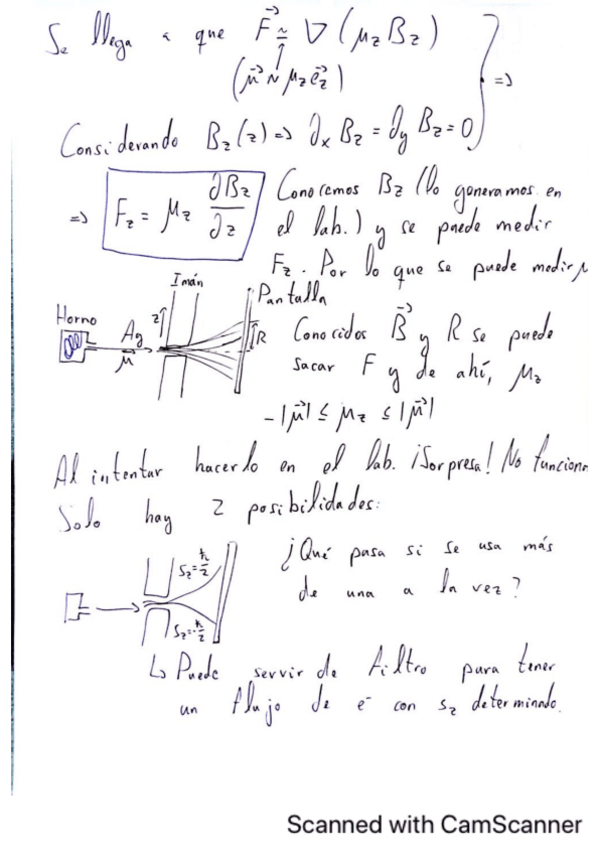 Se llega a que F⃗ ≃ ∇(μz Bz)
(μ⃗ ~ μz e⃗z)
⇒
Considerando Bz(z) ⇒ ∂x Bz = ∂y Bz = 0
⇒ Fz = μz ∂Bz/∂z
Conocemos Bz (lo generamos en
el lab.) y se puede medir
Fz. Por lo que se puede medir μ
Imán
Pantalla
Horno
z
Ag
μ⃗
R
Conocidos B⃗ y R se puede
sacar F y de ahí, μz
-|μ⃗| ≤ μz ≤ |μ⃗|
Al intentar hacerlo en el lab. ¡Sorpresa! No funciona
Solo hay 2 posibilidades:
Sz=ħ/2
Sz=-ħ/2
¿Qué pasa si se usa más
de una a la vez?
↳ Puede servir de filtro para tener
un flujo de e⁻ con sz determinado.
Scanned with CamScanner